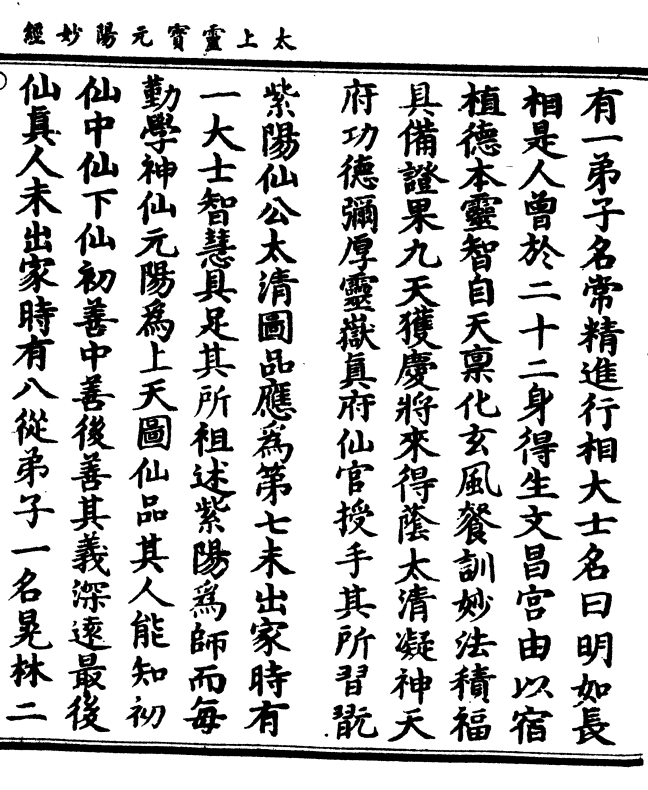 太上靈寳元陽妙經
有一弟子名常精進行相大士名曰明如長
相是人曾於二十二身得生文昌宮由以宿
植德本靈智自天禀化玄風餐訓妙法積福
具備證果九天獲慶將來得蔭太清凝神天
府功德彌厚靈嶽真府仙官授手其所習翫
紫陽仙公太清圖品應為第七未出家時有
一大士智慧具足其所祖述紫陽為師而每
勤學神仙元陽為上天圖仙品其人能知初
仙中仙下仙初善中善後善其義深遠最後
仙真人未出家時有八從弟子一名晃林二